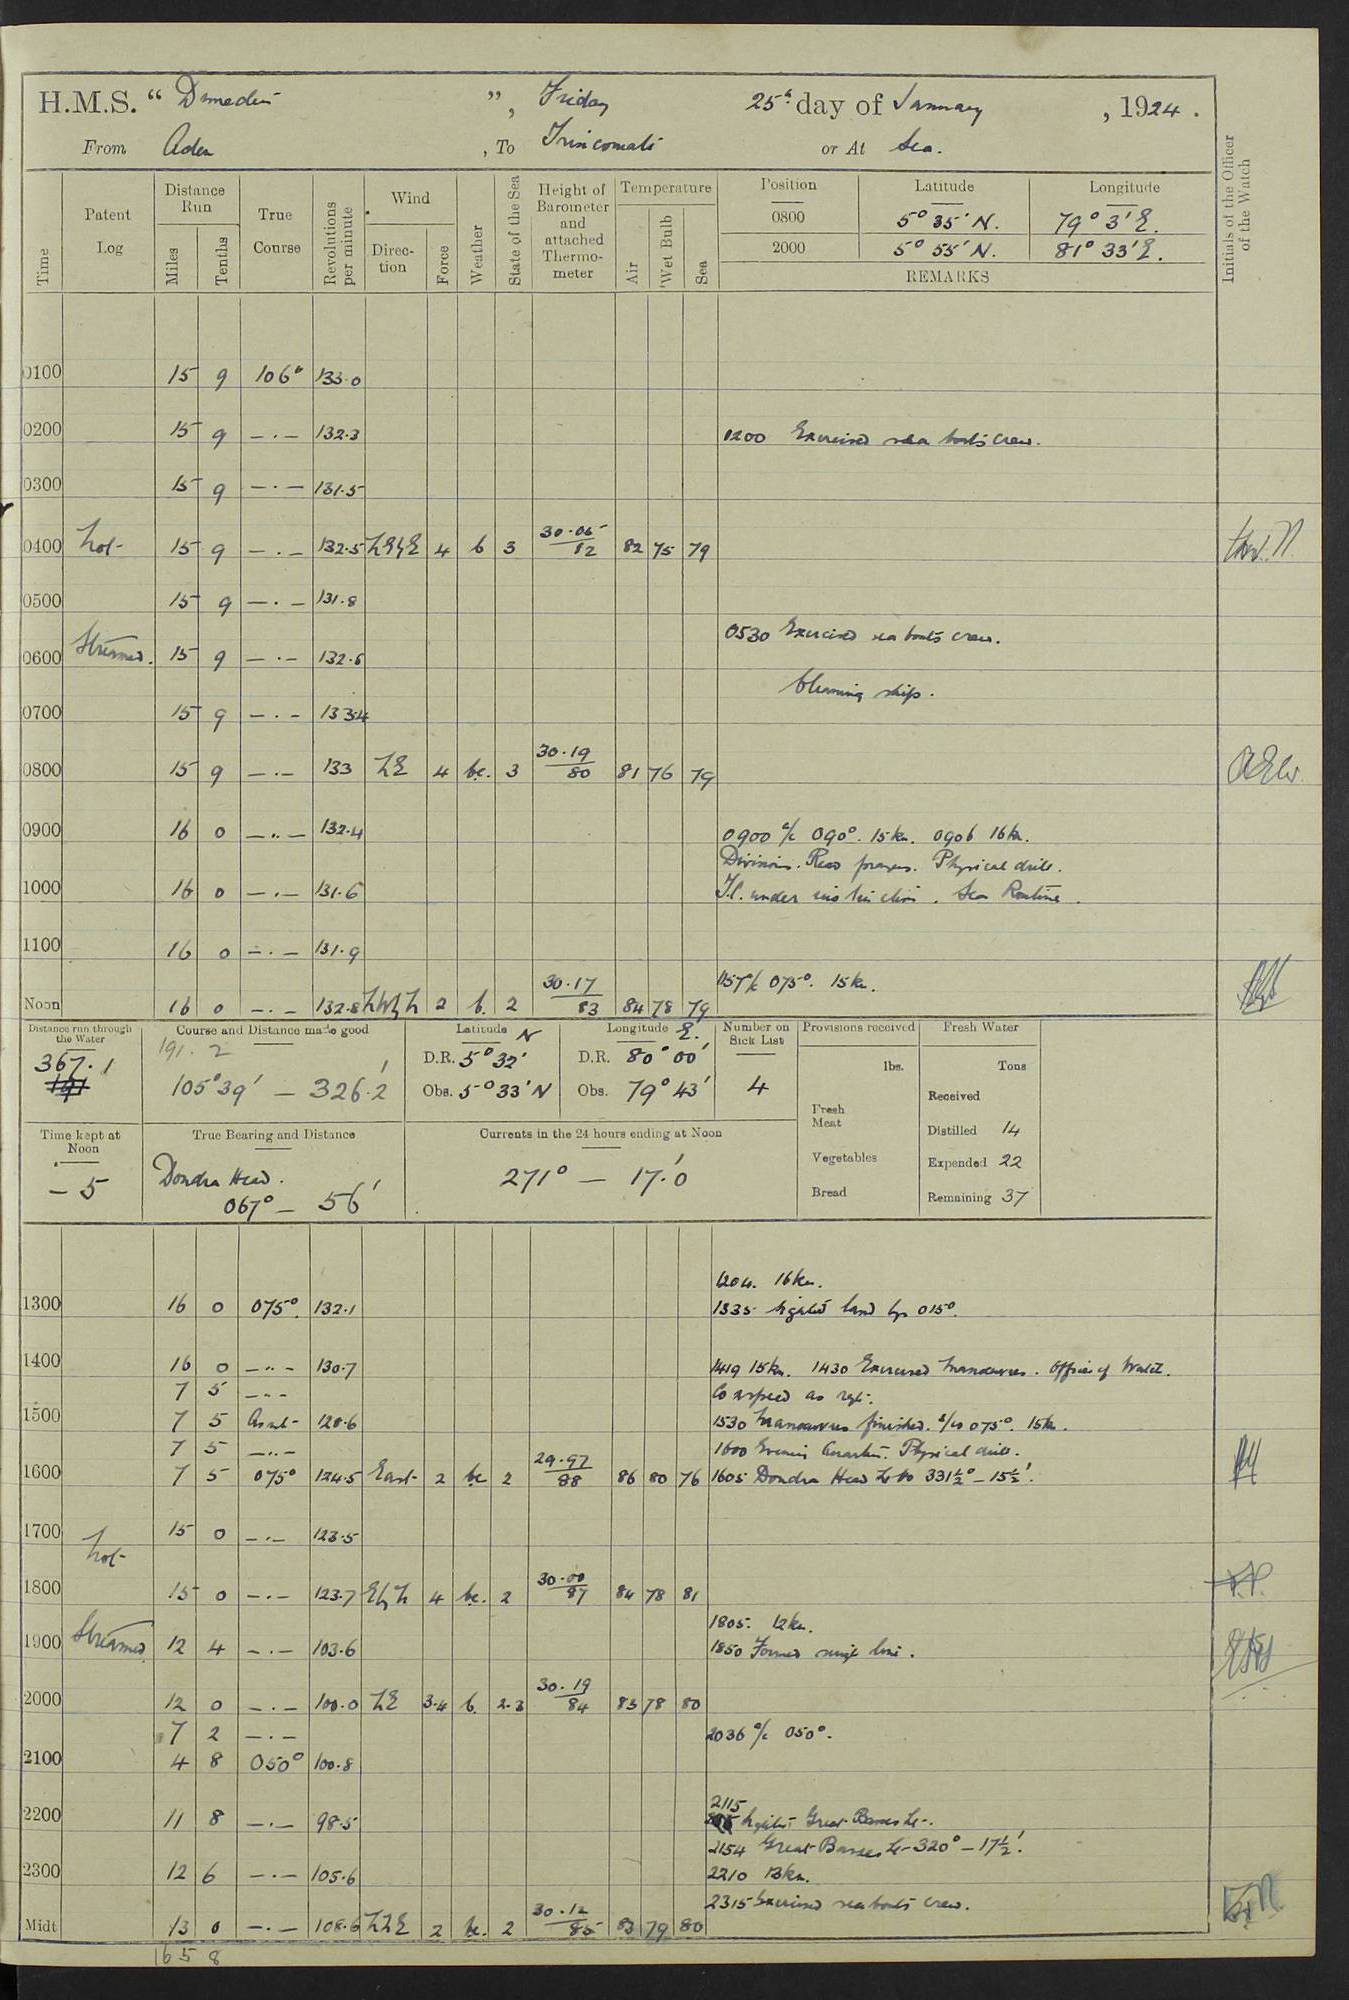 H.M.S. " Diomedes ", Friday 25th day of January, 1924.
From Aden, To Trincomali or At Sea.
Time Patent Log Distance Run Miles Tenths True Course Revolutions per minute Wind Direction Force Weather State of the Sea Height of Barometer and attached Thermometer Temperature Air Wet Bulb Sea
Initials of the Officer of the Watch
Position Latitude Longitude
0800 5° 35' N. 79° 3' E.
2000 5° 55' N. 81° 33' E.
REMARKS
0100 15 9 106° 133.0
0200 15 9 —.— 132.3 0200 Exercised sea boat's crew.
0300 15 9 —.— 131.5
0400 hot- 15 9 —.— 132.5 NE'ly E 4 b 3 30.05 82 82 75 79
0500 15 9 —.— 131.8
0530 Exercised sea boat's crew.
0600 Streamed. 15 9 —.— 132.6
Cleaning ship.
0700 15 9 —.— 133.4
0800 15 9 —.— 133 NE 4 bc. 3 30.19 80 81 76 79
0900 16 0 —..— 132.4 0900 a/c 090°. 15 kn. 0906 16 kn.
Divisions. Read prayers. Physical drill.
1000 16 0 —.— 131.6 T.C. under instruction. Sea Routine.
1100 16 0 —.— 131.9
1157 a/c 075°. 15 kn.
Noon 16 0 —.— 132.8 NWbyN 2 b. 2 30.17 83 84 78 79
Distance run through the Water 367.1
Course and Distance made good 191.2
105° 39' — 326.2'
Latitude N
D.R. 5° 32'
Obs. 5° 33' N
Longitude E.
D.R. 80° 00'
Obs. 79° 43'
Number on Sick List 4
Provisions received
lbs.
Fresh Meat
Vegetables
Bread
Fresh Water
Tons
Received
Distilled 14
Expended 22
Remaining 37
Time kept at Noon — 5
True Bearing and Distance
Dondra Head.
067° — 56'
Currents in the 24 hours ending at Noon
271° — 17.0'
1204. 16 kn.
1300 16 0 075°. 132.1 1335 Sighted land brg 015°.
1400 16 0 —..— 130.7 1419 15 kn. 1430 Exercised manoeuvres. Officer of Watch.
7 5 —..— Co & speed as req.
1500 7 5 As reqt- 120.6 1530 Manoeuvres finished. a/co 075°. 15 kn.
7 5 —..— 1600 Evening Quarters. Physical drill.
1600 7 5 075° 124.5 East- 2 bc 2 29.97 88 86 80 76 1605 Dondra Head Lt Ho 331½° — 15½'.
1700 15 0 —.— 123.5
hot-
1800 15 0 —.— 123.7 EbyN 4 bc. 2 30.00 87 84 78 81
1805. 12 kn.
1900 Streamed 12 4 —.— 103.6 1850 Formed single line.
2000 12 0 —.— 100.0 NE 3.4 b. 2.3 30.19 84 83 78 80
7 2 —.— 2036 a/c 050°.
2100 4 8 050° 100.8
2115
2200 11 8 —.— 98.5 Sighted Great Basses Lt-.
2154 Great Basses Lt- 320° — 17½'.
2300 12 6 —.— 105.6 2210 13 kn.
2315 Exercised sea boat's crew.
Midt 13 0 —.— 108.6 NNE 2 bc. 2 30.12 85 83 79 80
165 8